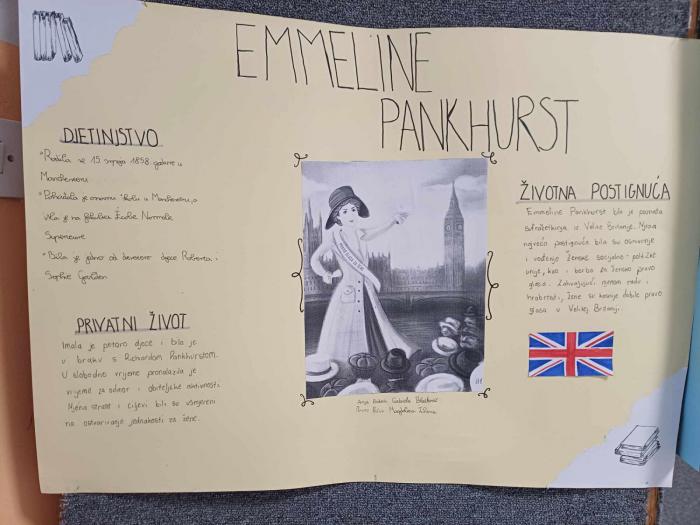 EMMELINE
PANKHURST
DJETINJSTVO
Rođena je 15. srpnja 1858. godine u
Manchesteru.
Pohađala je osnovnu školu u Manchesteru, a
išla je na fakultet École Normale
Superieure
Bila je jedno od devetero djece Roberta i
Sophie Goulden
PRIVATNI ŽIVOT
Imala je petoro djece i bila je
u braku s Richardom Pankhurstom.
U slobodno vrijeme pronalazila je
vrijeme za odmor i obiteljske aktivnosti.
Njena strast i ciljevi bili su usmjereni
na ostvarivanje jednakosti za žene.
ŽIVOTNA POSTIGNUĆA
Emmeline Pankhurst bila je poznata
sufražetkinja iz Velike Britanije. Njena
najveća postignuća bila su osnivanje
i vođenje Ženske socijalno-političke
unije, kao i borba za žensko pravo
glasa. Zahvaljujući njenom radu i
hrabrosti, žene su kasnije dobile pravo
glasa u Velikoj Britaniji.
Gabriela
Magdalena